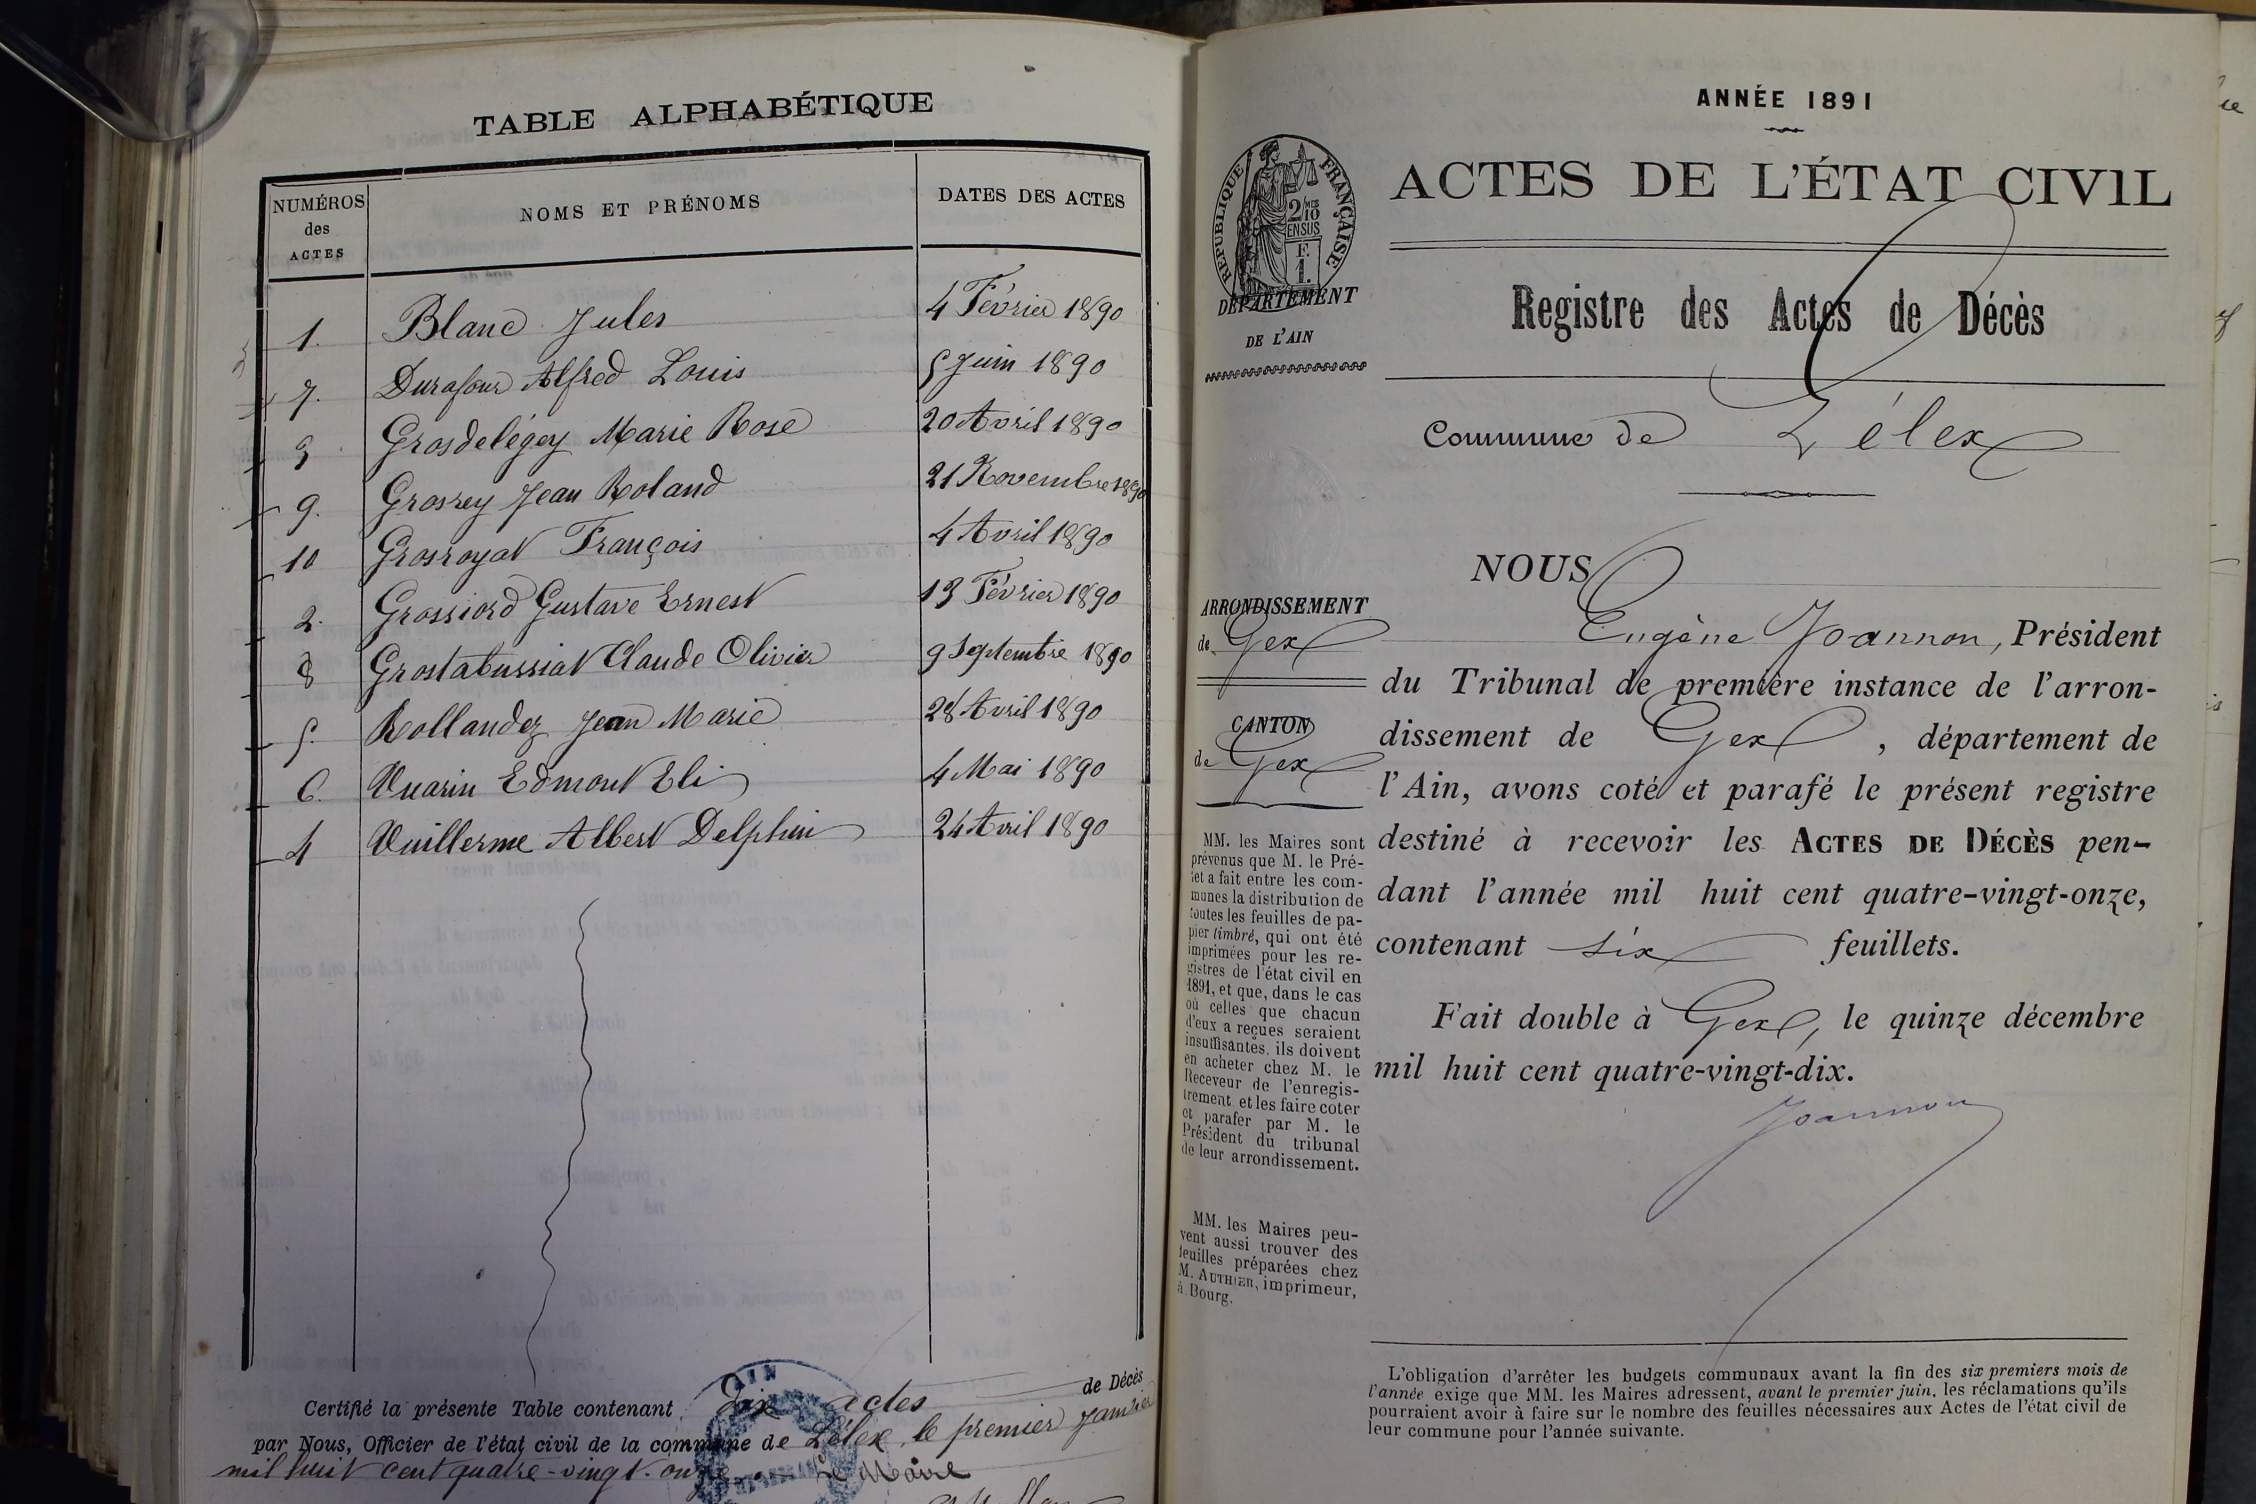 TABLE ALPHABÉTIQUE
NUMÉROS des ACTES
NOMS ET PRÉNOMS
DATES DES ACTES
1. Blanc Jules 4 Février 1890
7. Durafour Alfred Louis 5 Juin 1890
3 Grosdelégey Marie Rose 20 Avril 1890
9. Grosrey Jean Roland 21 Novembre 1890
10 Grosroyat François 4 Avril 1890
2. Grossiord Gustave Ernest 13 Février 1890
8 Grostabussiat Claude Olivier 9 Septembre 1890
5. Rollandez Jean Marie 28 Avril 1890
6. Vuarin Edmont Eli 4 Mai 1890
4 Vuillerme Albert Delphin 24 Avril 1890
Certifié la présente Table contenant Dix actes de Décès
par Nous, Officier de l'état civil de la commune de Lélex, le premier Janvier
mil huit cent quatre-vingt-onze. Le Maire
AIN
ANNÉE 1891
ACTES DE L'ÉTAT CIVIL
RÉPUBLIQUE FRANÇAISE
2/10 MES
EN SUS
F.
1.
DÉPARTEMENT
DE L'AIN
Registre des Actes de Décès
Commune de Lélex
ARRONDISSEMENT
de Gex
CANTON
de Gex
MM. les Maires sont
prévenus que M. le Pré-
fet a fait entre les com-
munes la distribution de
toutes les feuilles de pa-
pier timbré, qui ont été
imprimées pour les re-
gistres de l'état civil en
1891, et que, dans le cas
où celles que chacun
d'eux a reçues seraient
insuffisantes, ils doivent
en acheter chez M. le
Receveur de l'enregis-
trement et les faire coter
et parafer par M. le
Président du tribunal
de leur arrondissement.
MM. les Maires peu-
vent aussi trouver des
feuilles préparées chez
M. AUTHIER, imprimeur,
à Bourg.
NOUS
Eugène Joannon, Président
du Tribunal de première instance de l'arron-
dissement de Gex, département de
l'Ain, avons coté et parafé le présent registre
destiné à recevoir les ACTES DE DÉCÈS pen-
dant l'année mil huit cent quatre-vingt-onze,
contenant six feuillets.
Fait double à Gex, le quinze décembre
mil huit cent quatre-vingt-dix.
Joannon
L'obligation d'arrêter les budgets communaux avant la fin des six premiers mois de
l'année exige que MM. les Maires adressent, avant le premier juin, les réclamations qu'ils
pourraient avoir à faire sur le nombre des feuilles nécessaires aux Actes de l'état civil de
leur commune pour l'année suivante.